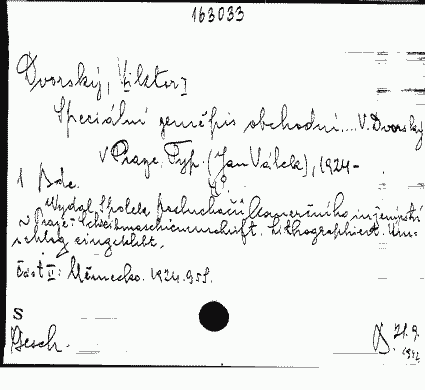 163033
Dvorský, Viktor
Speciální zeměpis obchodní... V. Dvorský
V Praze, Typ. (Jan Válek), 1924-
1 Bde. 4°.
Vydal Spolek posluchačů komerčního inženýrství
v Praze. Schreibmaschinenschrift. Lithographiert. Um-
schlag eingeklebt.
část II: Německo. 1924. 95 S.
S
Gesch.
D. 21.9.